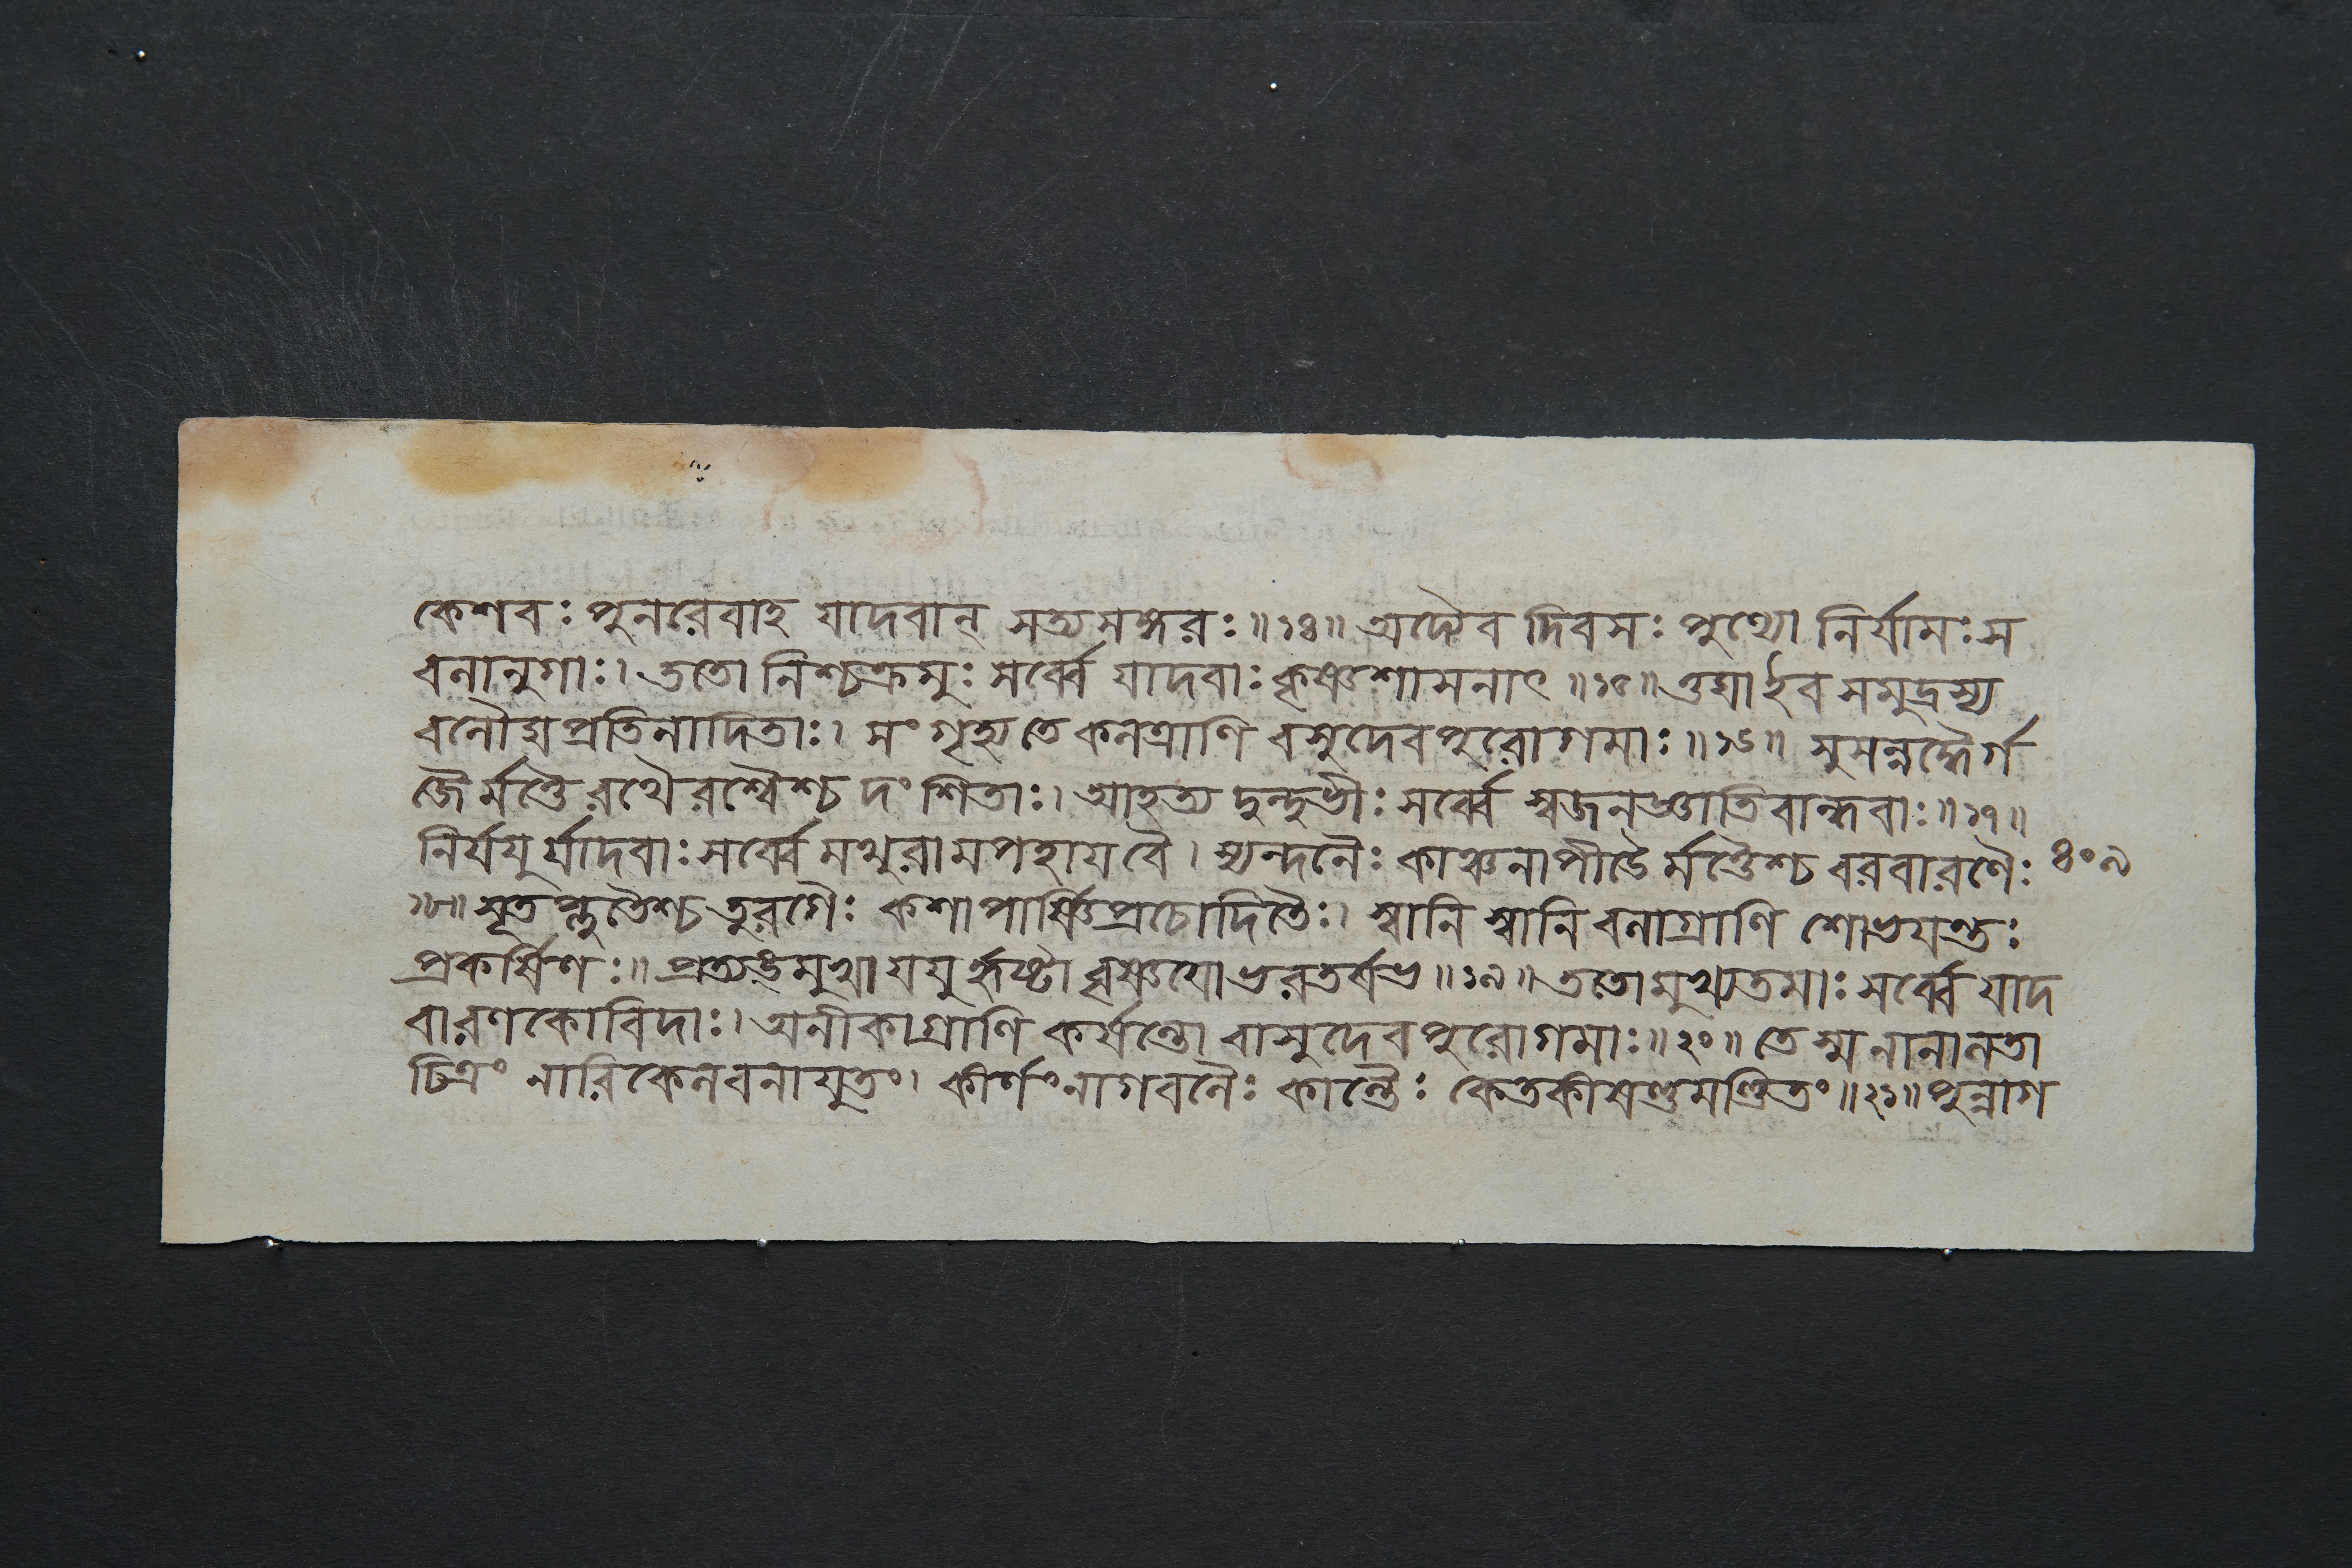 কেশবঃ পুনরেবাহ যাদবান্ সত্যসঙ্গরঃ॥১৪॥ অদ্যৈব দিবসঃ পুণ্যো নির্যামঃ স
বলানুগাঃ। ততো নিশ্চক্রমুঃ সর্ব্বে যাদবাঃ কৃষ্ণশাসনাৎ॥১৫॥ ওঘা ইব সমুদ্রস্য
বলৌঘপ্রতিনাদিতাঃ। সংগৃহ্য তে কলত্রাণি বসুদেবপুরোগমাঃ॥১৬॥ সুসন্নদ্ধৈর্গ
জৈর্মত্তৈ রথৈরশ্বৈশ্চ দংশিতাঃ। আহত্য দুন্দুভীঃ সর্ব্বে স্বজনজ্ঞাতিবান্ধবাঃ॥১৭॥
নির্যযুর্যাদবাঃ সর্ব্বে মথুরামপহায বৈ। স্যন্দনৈঃ কাঞ্চনাপীডৈর্মত্তৈশ্চ বরবারণৈঃ ৪০৯
১৮॥ সৃতপ্লুতৈশ্চ তুরগৈঃ কশাপার্ষ্ণিপ্রচোদিতৈঃ। স্বানি স্বানি বলাগ্রাণি শোভযন্তঃ
প্রকর্ষিণঃ॥ প্রত্যঙ্মুখা যযুর্হৃষ্টা বৃষ্ণযো ভরতর্ষভ॥১৯॥ ততো মুখ্যতমাঃ সর্ব্বে যাদ
বা রণকোবিদাঃ। অনীকাগ্রাণি কর্ষন্তো বাসুদেবপুরোগমাঃ॥২০॥ তে স্ম নানালতা
চিত্রং নারিকেলবনাযুতং। কীর্ণং নাগবলৈঃ কান্তৈঃ কেতকীষণ্ডমণ্ডিতং॥২১॥ পুন্নাগ